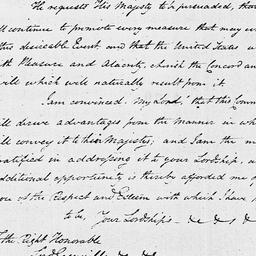 He requests His Majesty to be persuaded, tha
ll continue to promote every measure that may
this desireable Event and that the United States
th Pleasure and Alacrity, cherish the Concord an
will which will naturally result from it.
I am convinced, my Lord, that this
will derive advantages from the Manner in wh
ill convey it to their Majesties; and I am the m
ratified in addressing it to your Lordship, as
dditional opportunity is thereby afforded me
you of the Respect and Esteem with which I have
to be, Your Lordship's &c
f the Right Honorable